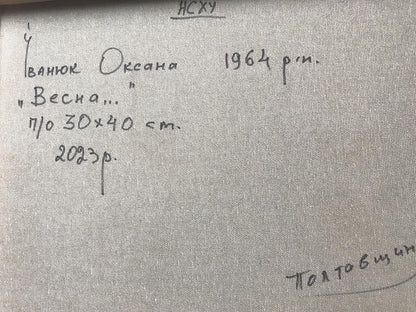 НСХУ
Іванюк Оксана 1964 р.н.
„Весна..."
п/о 30х40 см.
2023р.
Полтавщин